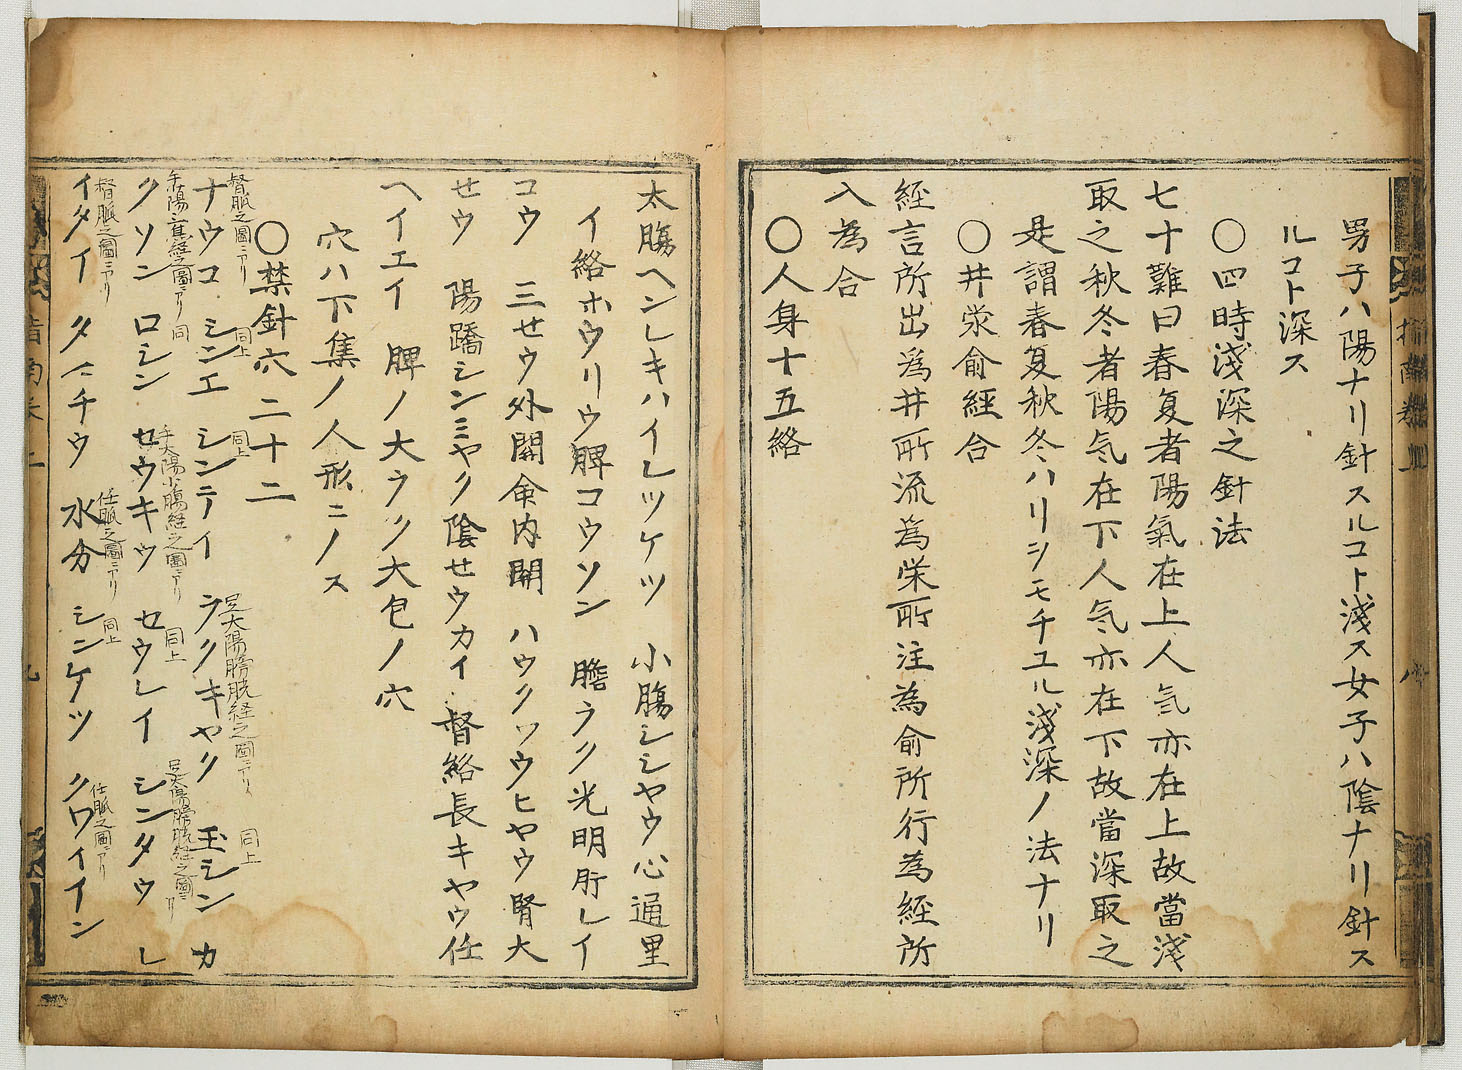 男子ハ陽ナリ針スルコト淺ス女子ハ陰ナリ針ス
ルコト深ス
〇四時淺深之針法
七十難曰春夏者陽氣在上人気亦在上故當淺
取之秋冬者陽気在下人気亦在下故當深取之
是謂春夏秋冬ハリシモチユル淺深ノ法ナリ
〇井滎俞經合
經言所出為井所流為栄所注為俞所行為經所
入為合
〇人身十五絡
太膓ヘンレキハイレツケツ 小膓シシヤウ心通里
イ絡ホウリウ脾コウソン 膽ラク光明肝レイ
コウ 三せウ外關命内關 ハウクワウヒヤウ腎大
せウ 陽蹻シンミヤク陰せウカイ 督絡長キヤウ任
ヘイエイ 脾ノ大ラク大包ノ穴
穴ハ下集ノ人形ニノス
〇禁針穴 二十二
督脈之圖ニアリ 同上 同上 足太陽膀胱経之圖ニアリ 同上
ナウコ シンエ シンテイ ラクキヤク 玉シン カ
手陽三焦経之圖ニアリ 同 手太陽小膓経之圖ニアリ 同上 足太陽膀胱経之圖ニアリ
クソン ロシン セウキウ セウレイ シンタウ レ
督脈之圖ニアリ 任脈之圖ニアリ 同上 任脈之圖ニアリ
イタイ タニチウ 水分 シンケツ クワイイン